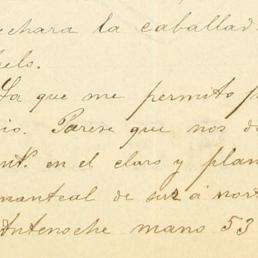 echara la caballad
uelo.
La que me permito p
io. Parece que nos d
unt. en el claro y plan
manteal de sur á nort
Antenoche mano 53